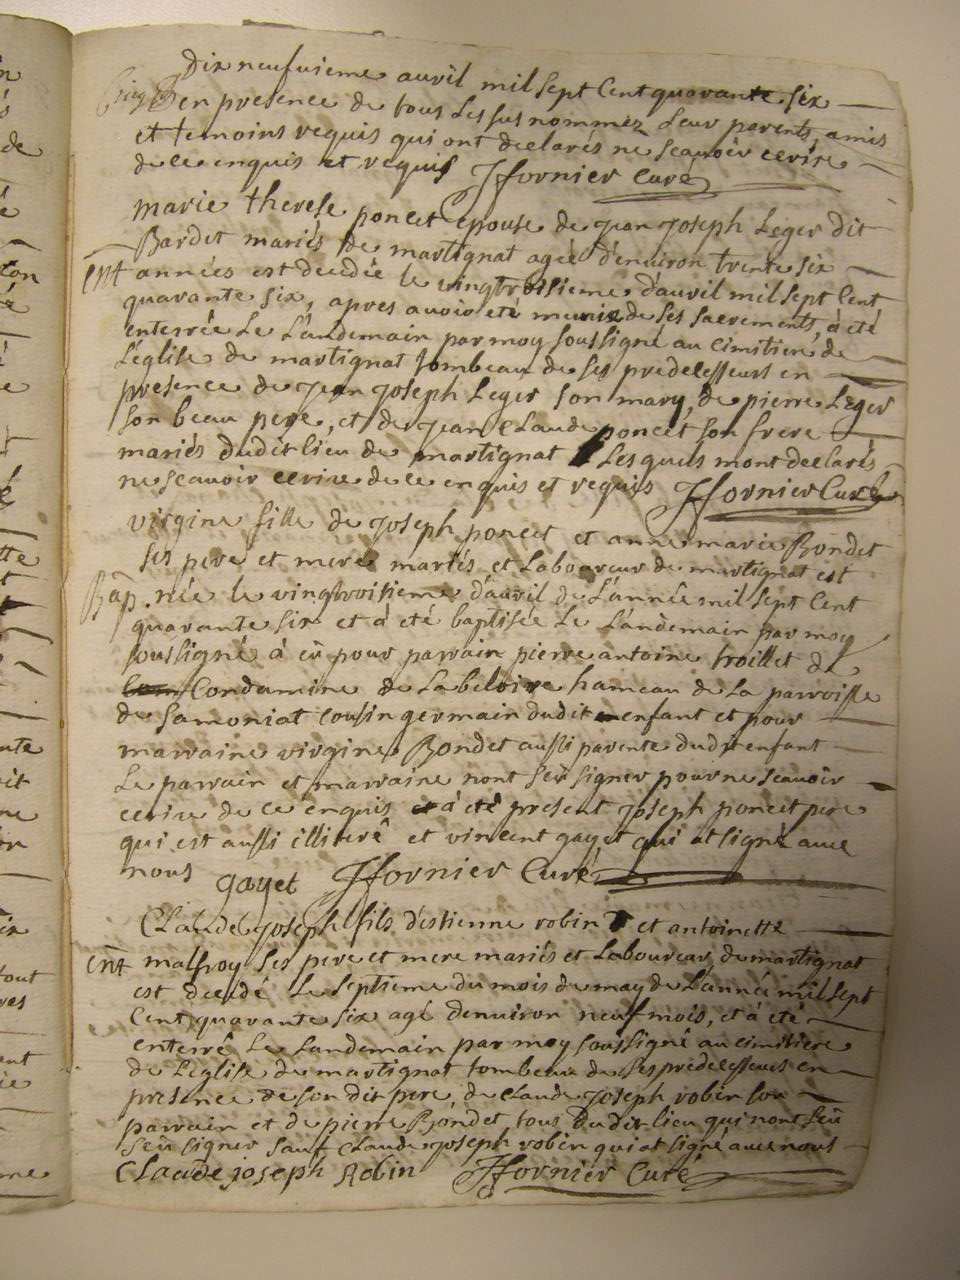 dix neufvieme auvil mil sept Cent quarante six
en presence de tous Les sus nommez Leur parents, amis
et temoins requis qui ont declarés ne scauoir ecrire
de ce enquis et requis JJfornier Curé
marie therese poncet epouse de jean joseph Leger dit
Bardet mariés de martignat agée d'enuiron trente six
Ent années est decedée le vingtroisieme d'auvil mil sept Cent
quarante six, apres auoir eté munie de ses sacrements, à été
enterrée Le L'andemain par moy soussigné au cimitiere de
L'église de martignat tombeau de ses predecesseurs en
presence de jean joseph Leger son mary, de pierre Leger
son beau pere, et de jean CLaude poncet son frere
mariés dudit lieu de martignat Lesquels m'ont declarés
ne scauoir ecrire de ce enquis et requis JJfornier Curé
virgine fille de joseph poncet et anne marie Bondet
ses pere et mere mariés et Laboureur de martignat est
Bap. née le vingtroisieme d'auvil de L'année mil sept Cent
quarante six et à été baptisée Le L'andemain par moy
soussigné à eü pour parrain pierre antoine troillet de
Condamine de Labeloire hameau de La parroisse
de Samoniat cousin germain dudit enfant et pour
marraine virgine Bondet aussi parente dudit enfant
Le parrain et marraine n'ont seü signer pour ne scauoir
ecrire de ce enquis à eté present joseph poncet pere
qui est aussi illiteré et vincent gayet qui at signé auec
nous gayet JJfornier Curé
CLaude joseph fils d'estienne robin et antoinette
Ent malfroy ses pere et mere mariés et Laboureur de martignat
est decedé Le septieme du mois de may de L'année mil sept
Cent quarante six agé d'enuiron neuf mois, et à été
enterré Le Landemain par moy soussigné au cimitiere
de L'eglise de martignat tombeau de ses predecesseurs en
presence de son dit pere, de claude joseph robin son
parrain et de pierre Bondet tous dudit lieu qui n'ont seü
seü signer sauf claude joseph robin qui at signé auec nous
CLaude joseph Robin JJfornier Curé